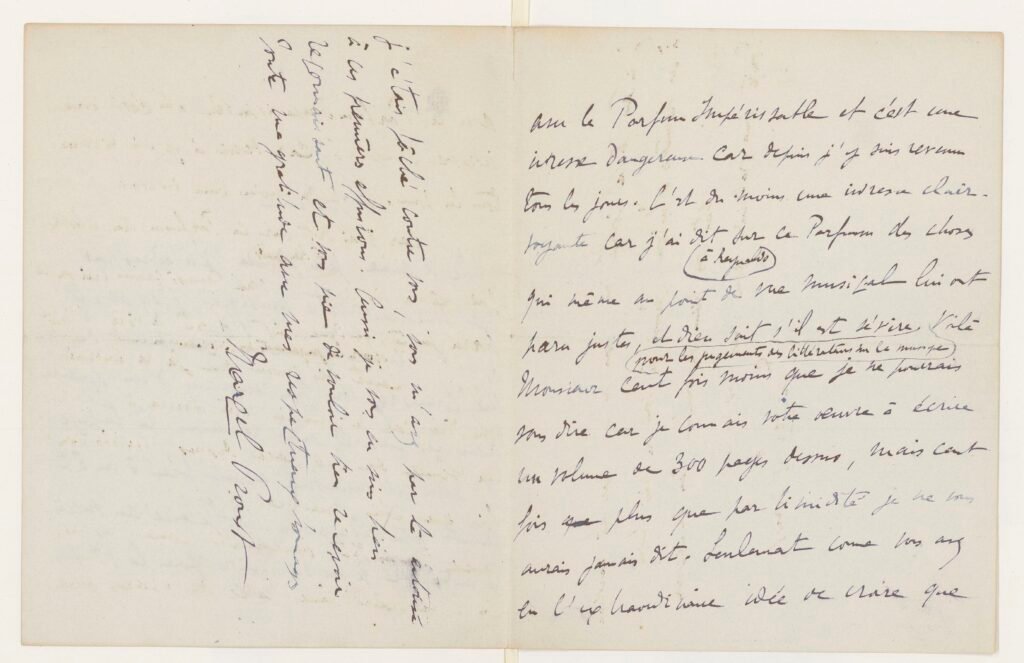 avec le Parfum Impérissable et c'est une
ivresse dangereuse car depuis j'y suis revenu
tous les jours. C'est du moins une ivresse clair-
voyante car j'ai dit sur ce Parfum des choses
(à Reynaldo)
qui même au point de vue musical lui ont
paru justes, et dieu sait s'il est sévère. Voilà
(pour les jugements des littérateurs sur la musique)
Monsieur cent fois moins que je ne pourrais
vous dire car je connais votre œuvre à écrire
un volume de 300 pages dessus, mais cent
fois plus que par timidité je ne vous
aurais jamais dit. Seulement come vous avez
eu l'extraordinaire idée de croire que
j'étais fâché contre vous, vous m'avez par là autorisé
à ces premières effusions. Aussi je vous en suis bien
reconnaissant et vous prie de vouloir bien recevoir
toute ma gratitude avec mes respectueux hommages
Marcel Proust